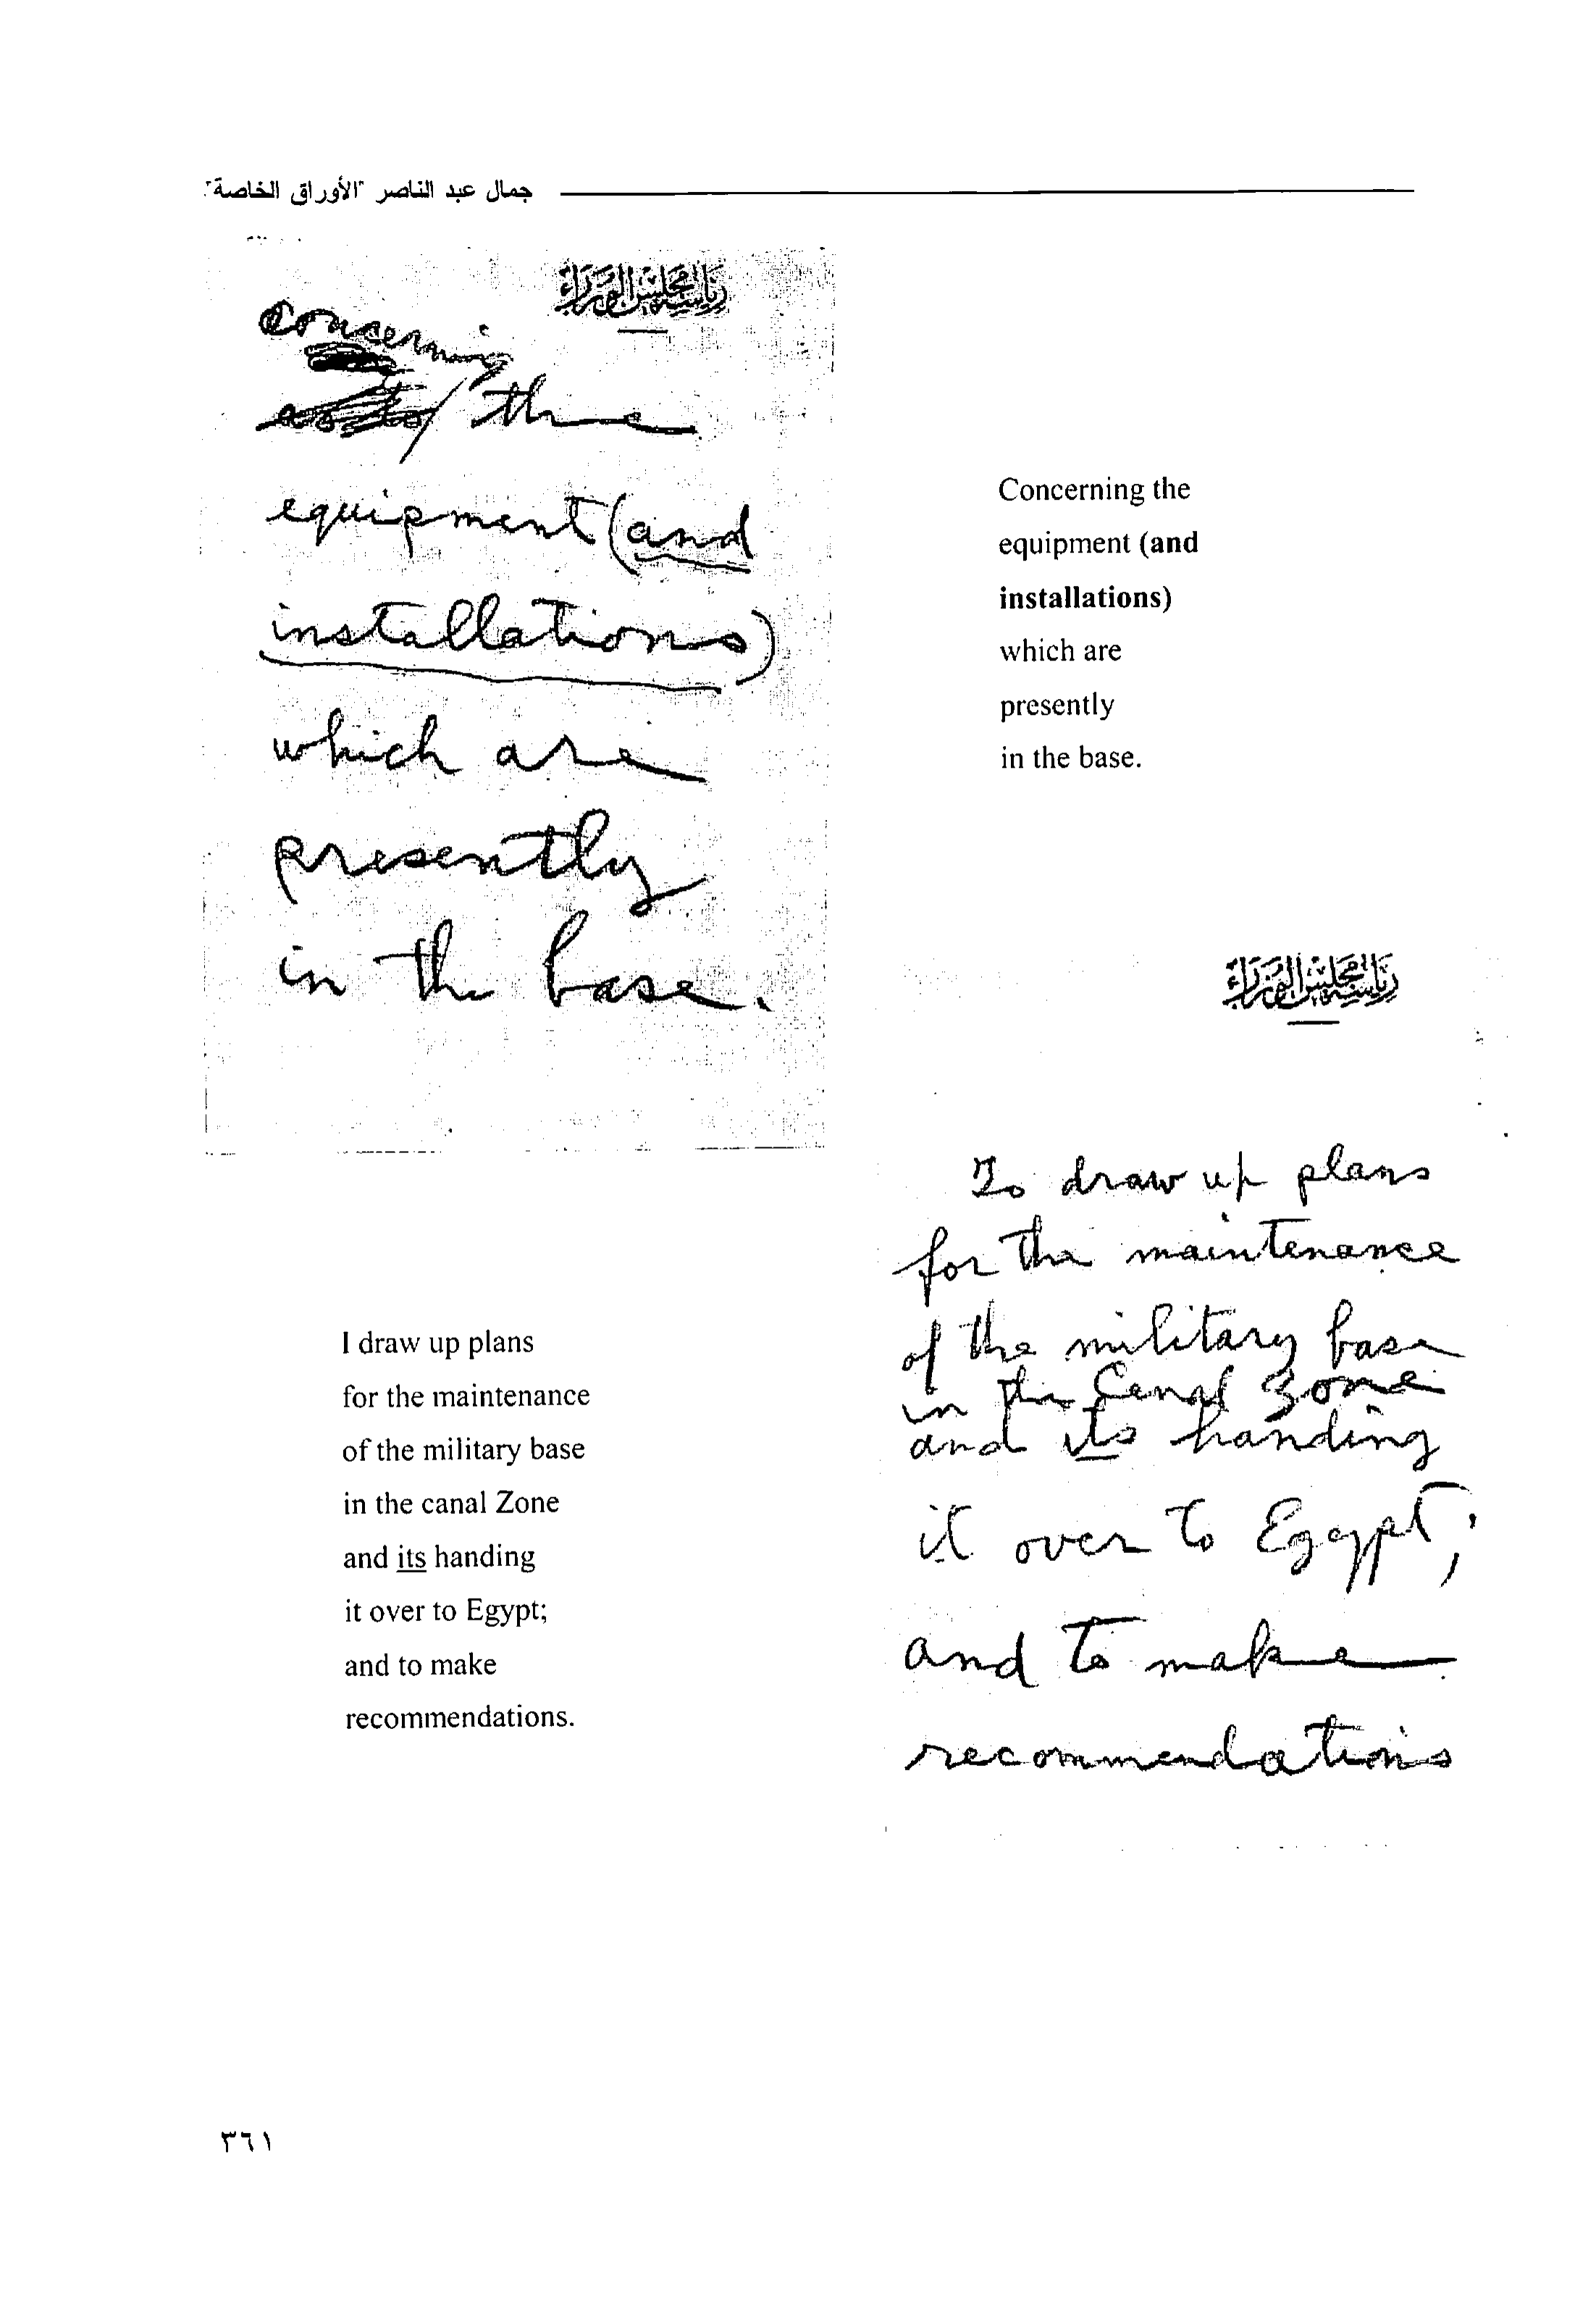 جمال عبد الناصر "الأوراق الخاصة"
رياسة مجلس الوزراء
concerning
as to / the
equipment (and
installations)
which are
presently
in the base.
Concerning the
equipment (and
installations)
which are
presently
in the base.
رياسة مجلس الوزراء
To draw up plans
for the maintenance
of the military base
in the Canal Zone
and its handing
it over to Egypt;
and to make
recommendations
I draw up plans
for the maintenance
of the military base
in the canal Zone
and its handing
it over to Egypt;
and to make
recommendations.
٣٦١